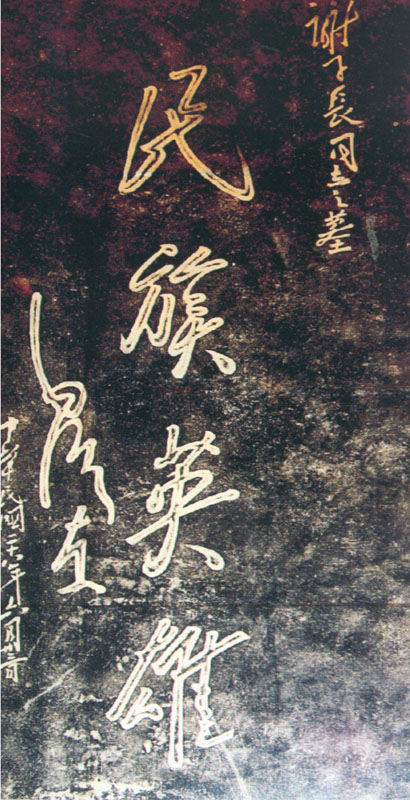 謝子長同志之墓
民族英雄
毛澤东
中華民國二十八年六月